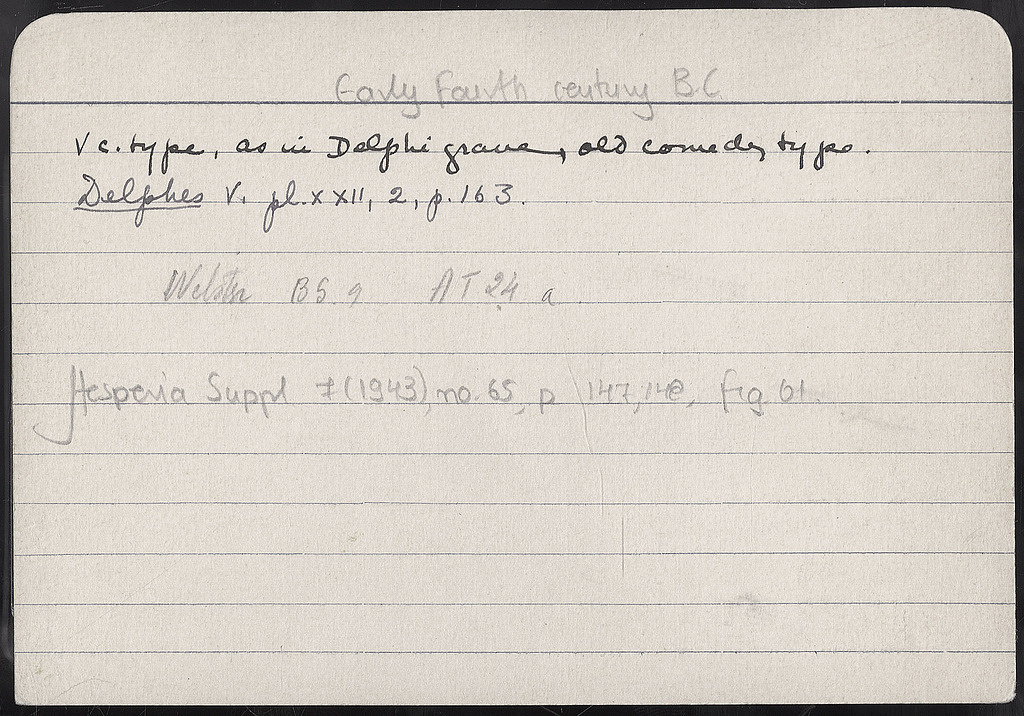 Early Fourth century B.C
V c. type, as in Delphi grave, old comedy type.
Delphes V. pl. XXII, 2, p. 163.
Webster BS 9 AT 24 a
Hesperia Suppl 7 (1943), no. 65, p 147,148, fig 61.